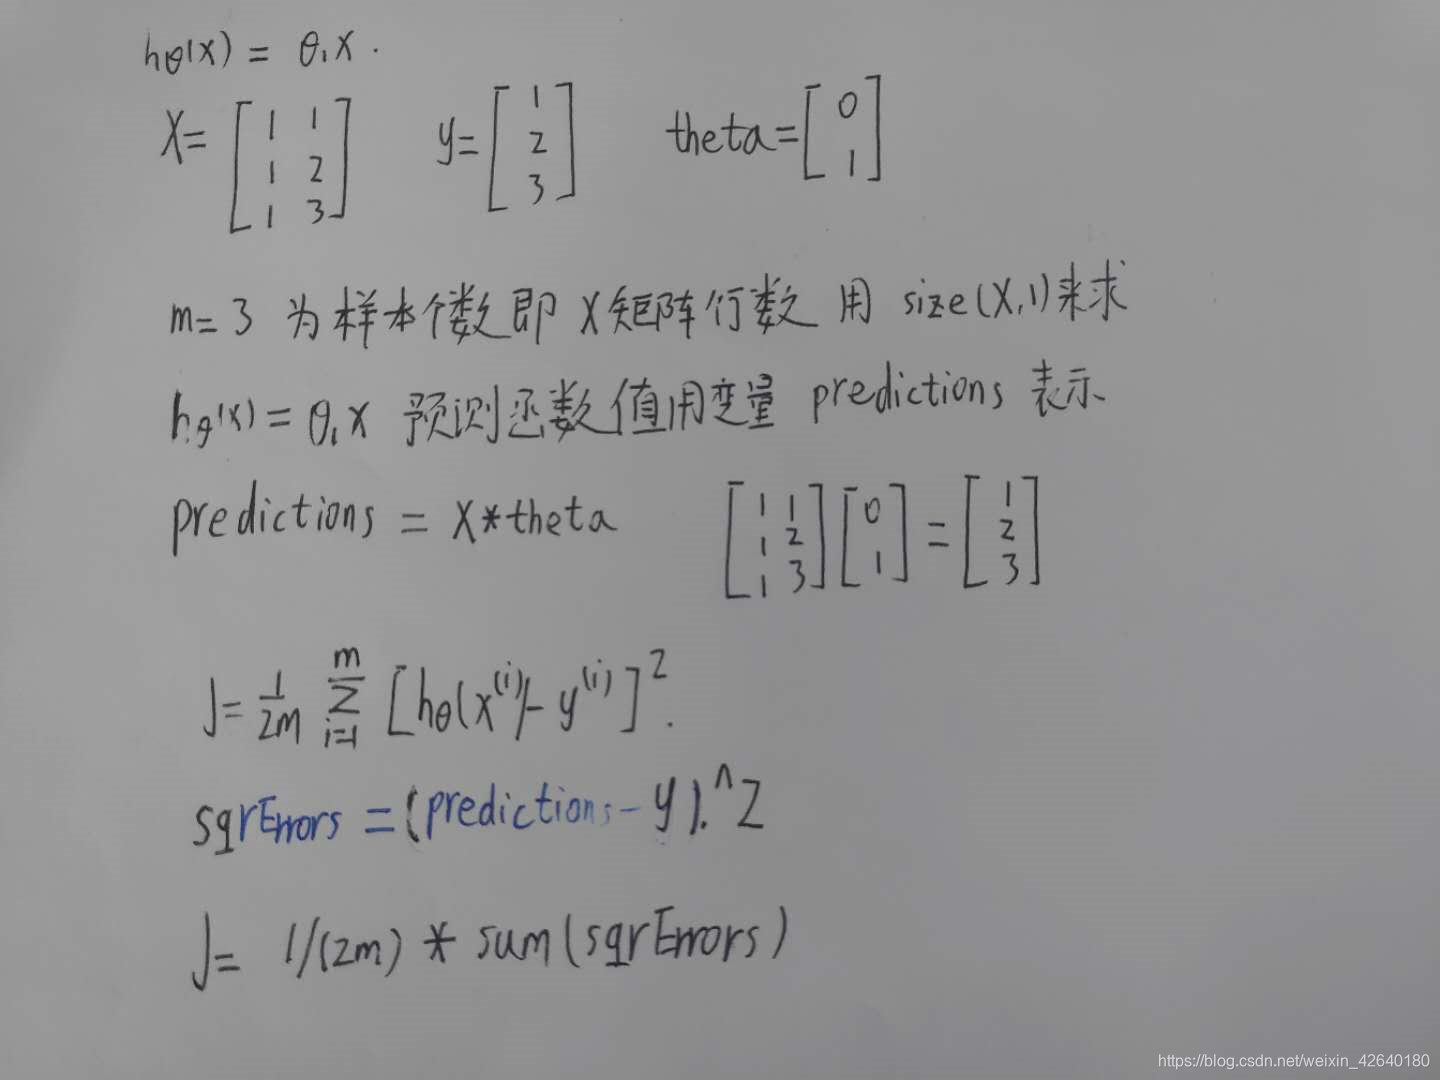 hθ(x) = θ₁x.
X= [1 1; 1 2; 1 3] y= [1; 2; 3] theta= [0; 1]
m=3 为样本个数即 X矩阵行数 用 size(X,1)来求
hθ(x) = θ₁x 预测函数值用变量 predictions 表示
predictions = X*theta [1 1; 1 2; 1 3] [0; 1] = [1; 2; 3]
J= 1/2m ∑ᵢ₌₁ᵐ [hθ(x⁽ⁱ⁾)-y⁽ⁱ⁾]².
sqrErrors =(predictions-y).^2
J= 1/(2m) * sum(sqrErrors)
https://blog.csdn.net/weixin_42640180